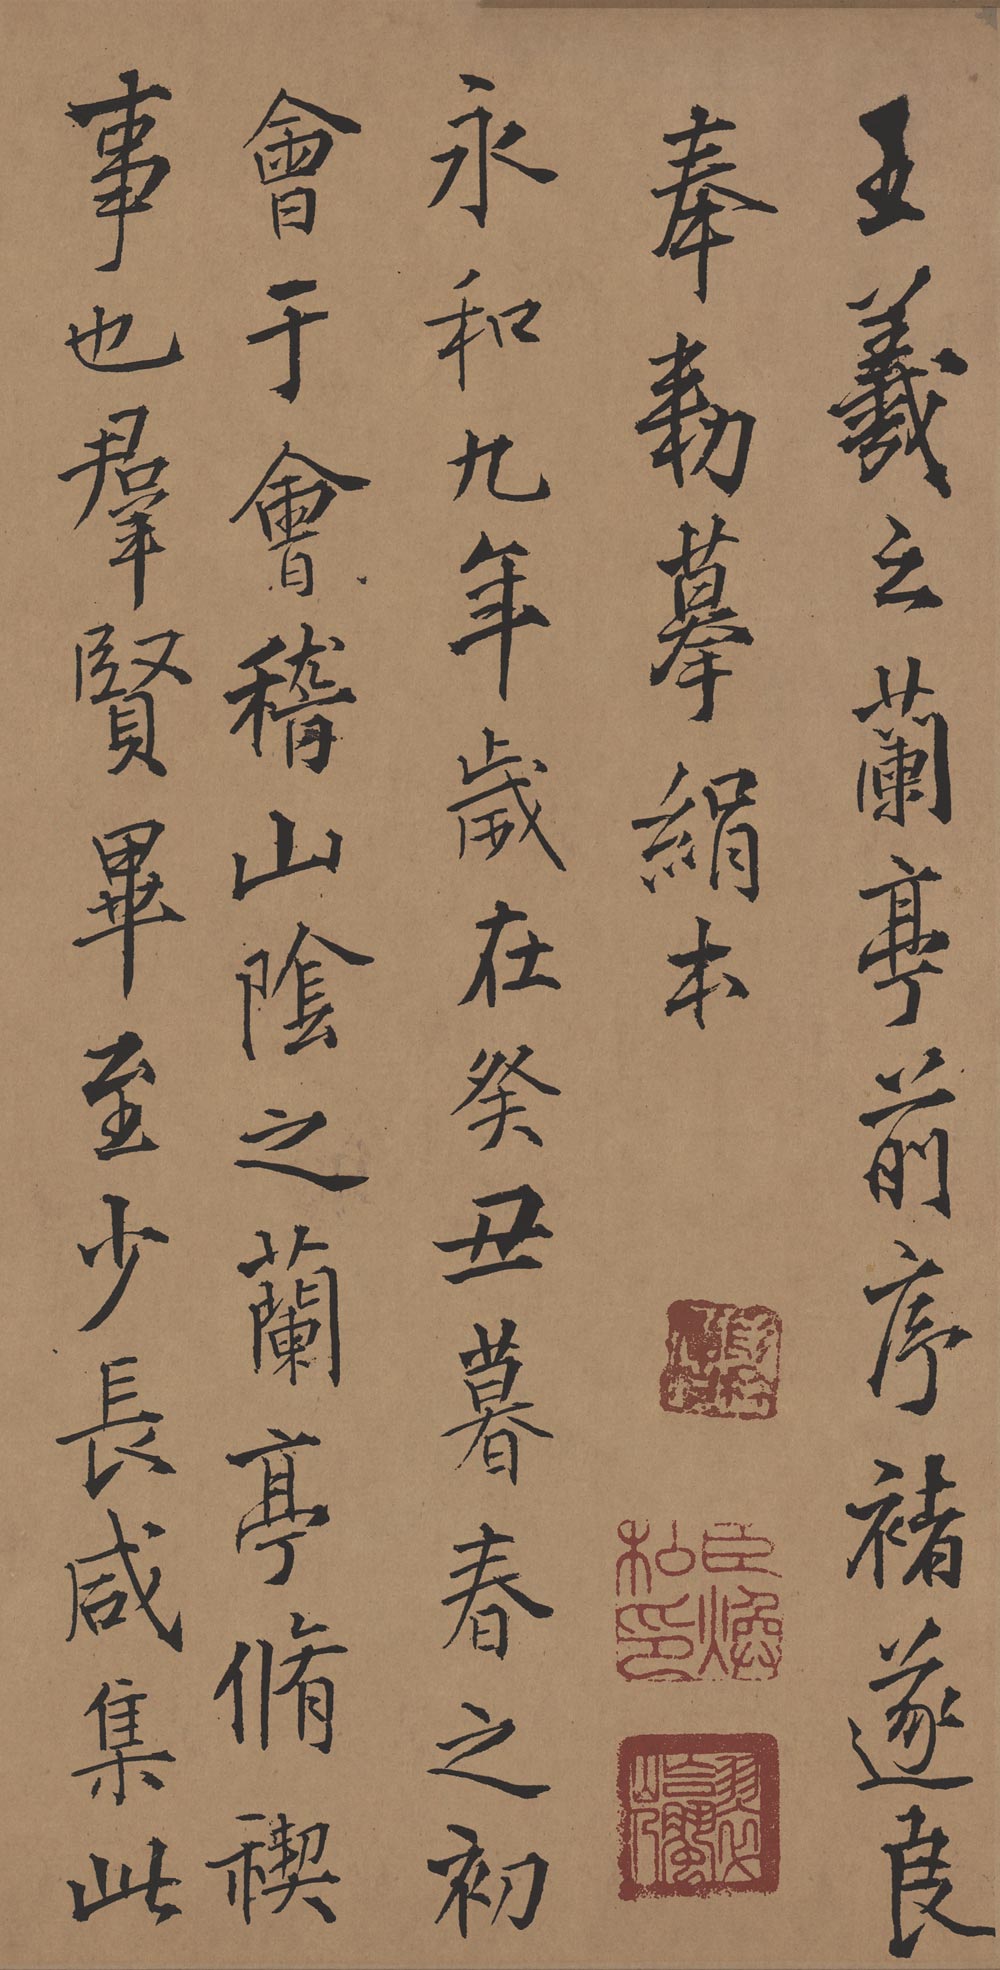 王羲之蘭亭前序褚遂良
奉勅摹絹本
永和九年歲在癸丑暮春之初
會于會稽山陰之蘭亭脩禊
事也群賢畢至少長咸集此
臣煥
私印